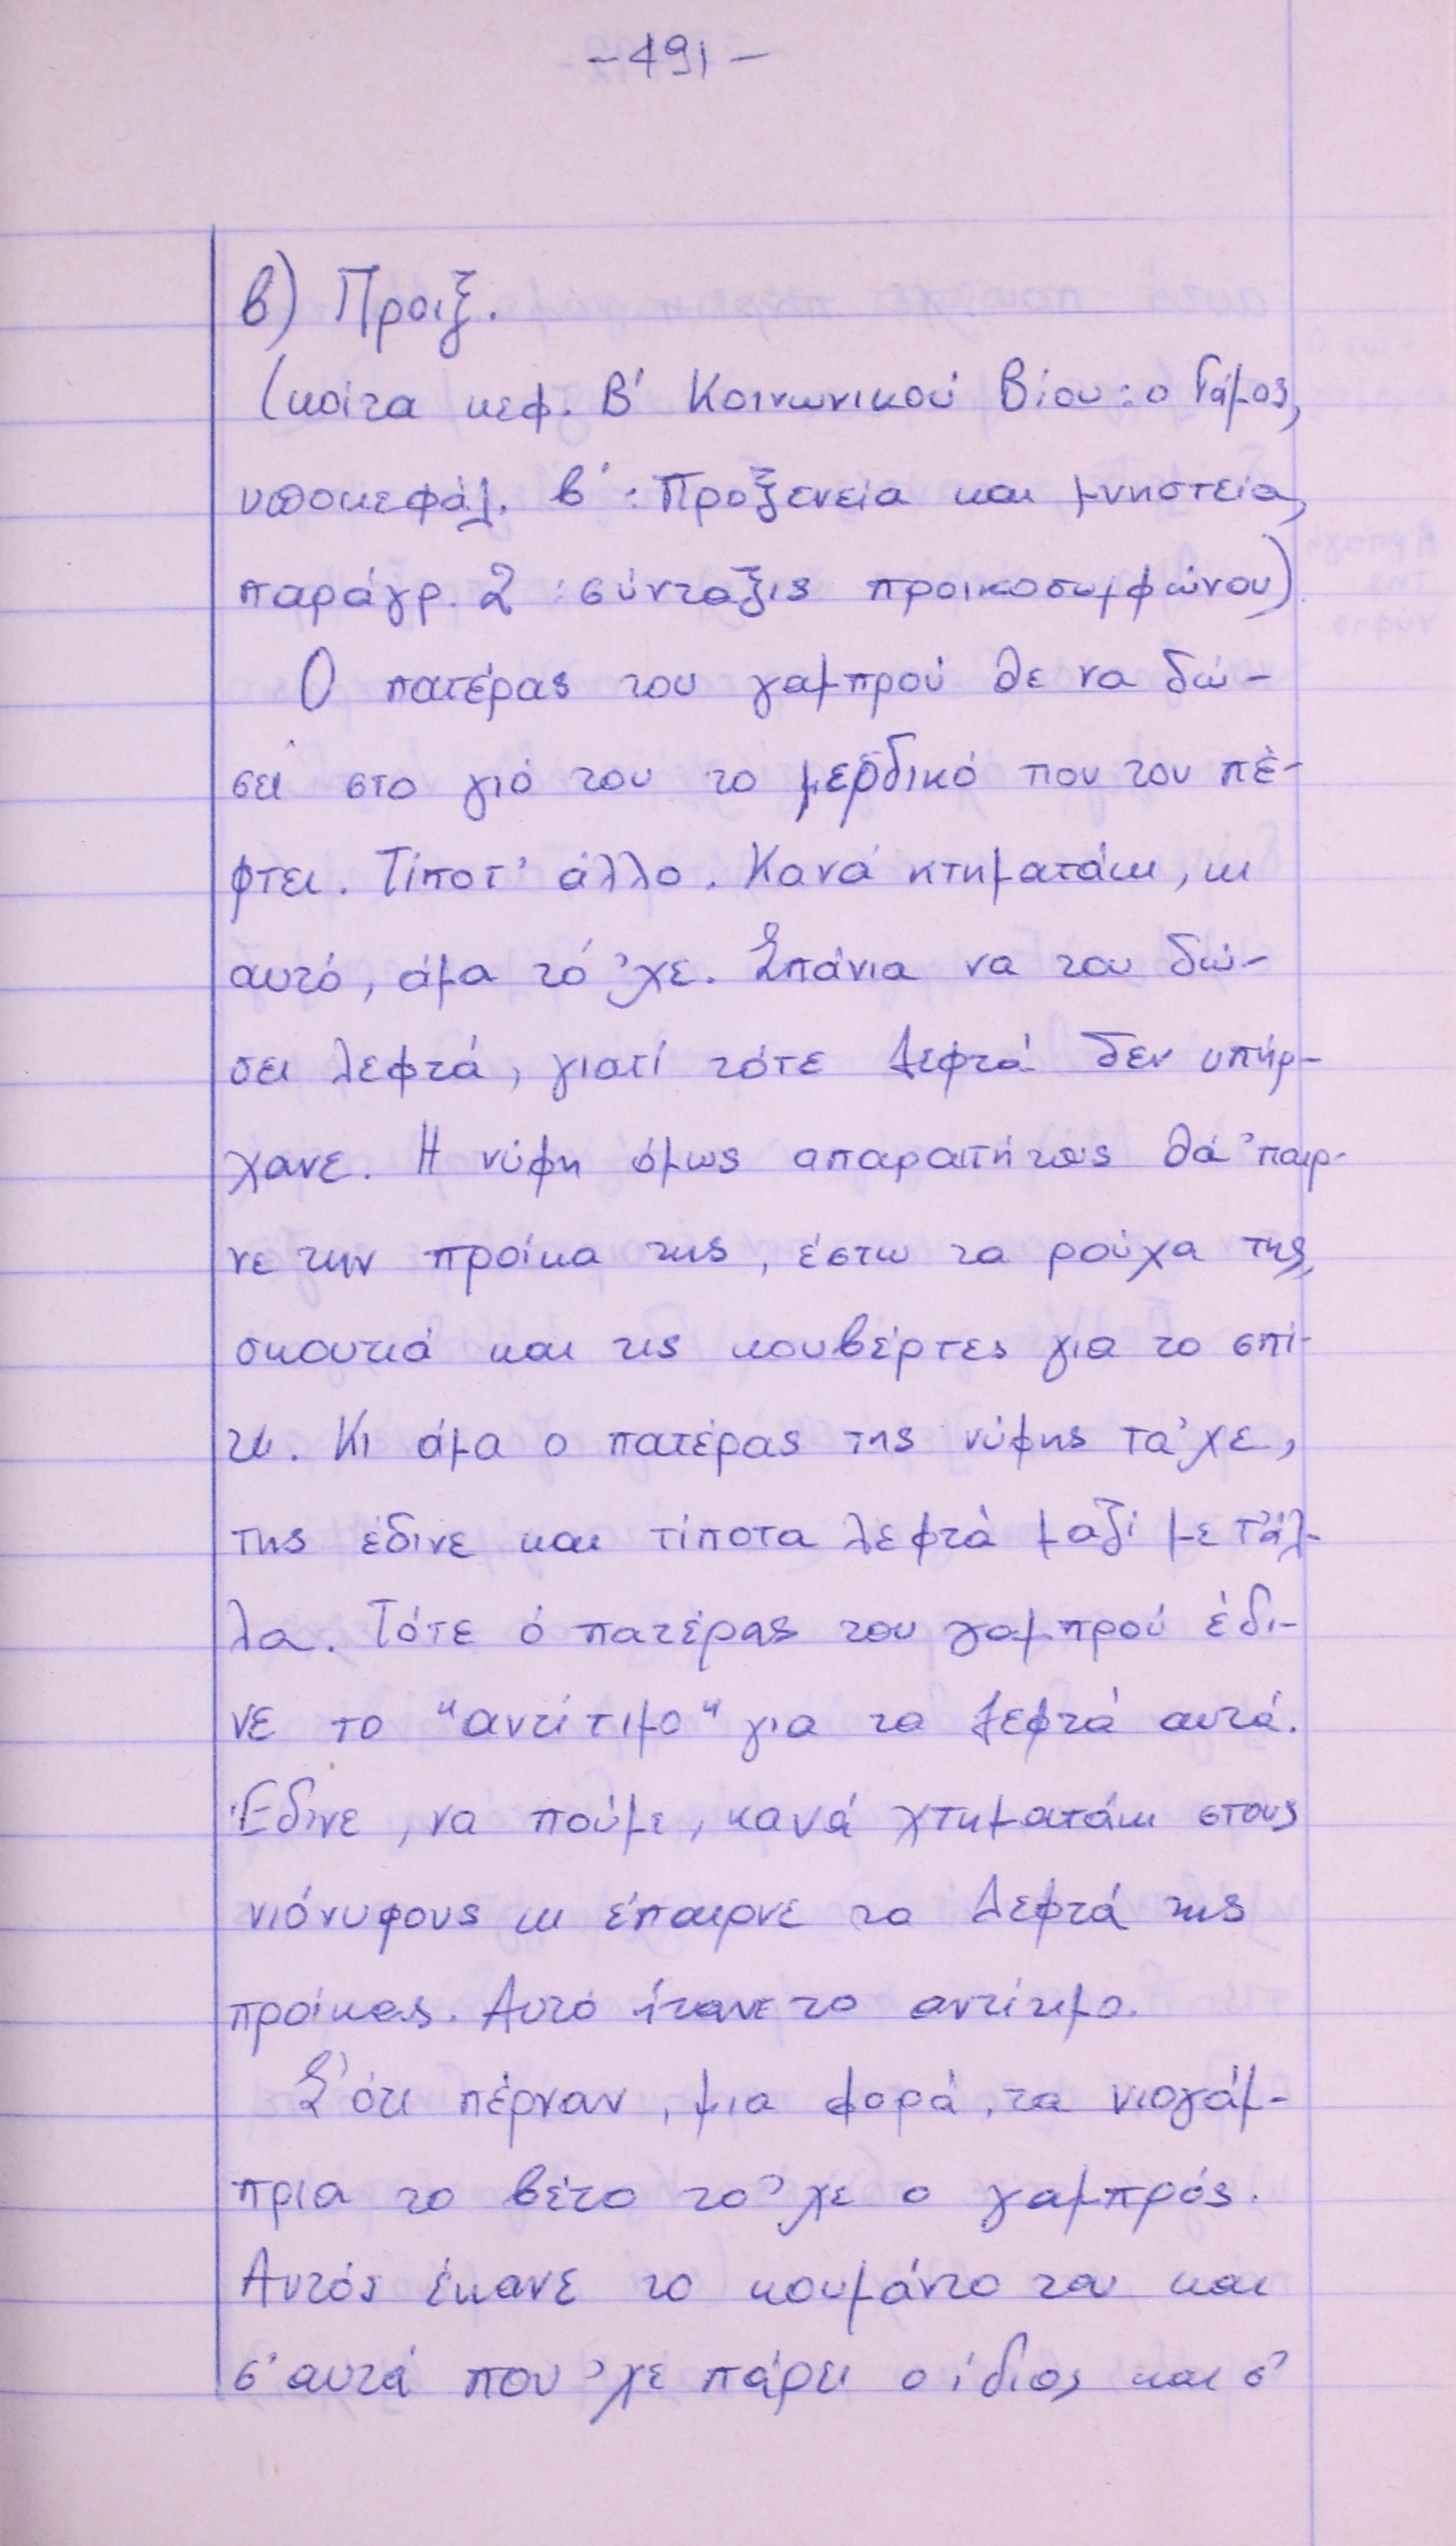 -491-
β) Προιξ.
(κοίτα κεφ. Β' Κοινωνικού Βίου: ο Γάμος,
υποκεφάλ. β': Προξενεία και μνηστεία,
παράγρ. 2 : σύνταξις προικοσυμφώνου)
Ο πατέρας του γαμπρού θε να δώ-
σει στο γιό του το μερδικό που του πέ-
φτει. Τίποτ' άλλο. Κανά κτηματάκι, κι
αυτό, άμα τό 'χε. Σπάνια να του δώ-
σει λεφτά, γιατί τότε λεφτά δεν υπήρ-
χανε. Η νύφη όμως απαραιτήτως θά 'παιρ-
νε την προίκα της, έστω τα ρούχα της,
σκουτιά και τις κουβέρτες για το σπί-
τι. Κι άμα ο πατέρας της νύφης τα 'χε,
της έδινε και τίποτα λεφτά μαζί με τ' άλ-
λα. Τότε ό πατέρας του γαμπρού έδι-
νε το "αντίτιμο" για τα λεφτά αυτά.
Έδινε, να πούμε, κανά χτηματάκι στους
νιόνυφους κι έπαιρνε τα λεφτά της
προίκας. Αυτό ήτανε το αντίτιμο.
Σ' ότι πέρναν, μια φορά, τα νιογάμ-
πρια το βέτο το 'χε ο γαμπρός.
Αυτός έκανε το κουμάντο του και
σ' αυτά που 'χε πάρει ο ίδιος και σ'